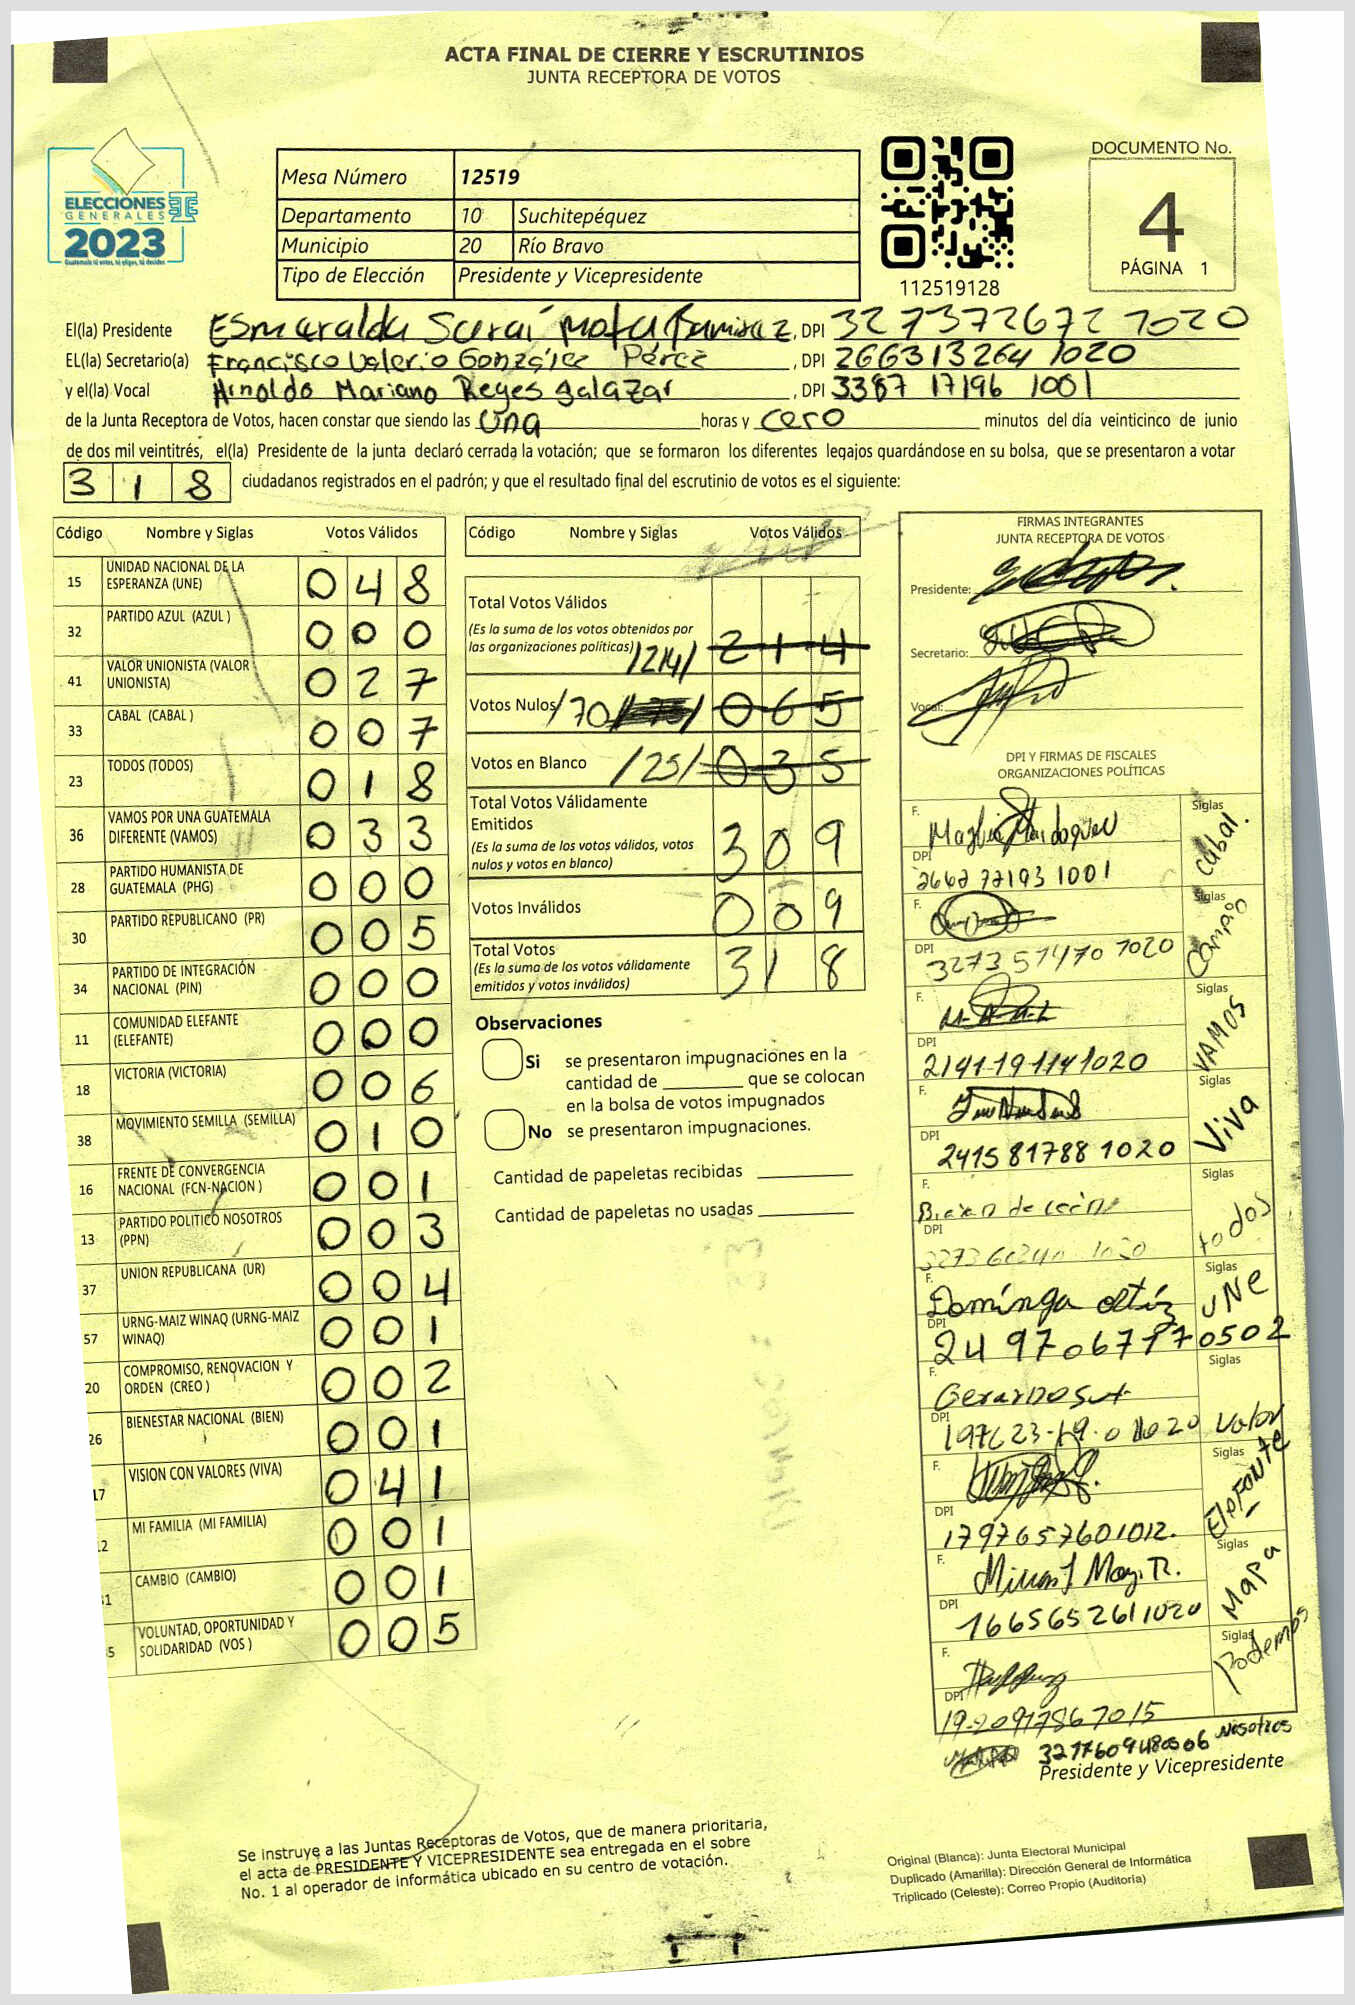 ACTA FINAL DE CIERRE Y ESCRUTINIOS
JUNTA RECEPTORA DE VOTOS
ELECCIONES
GENERALES
2023
Guatemala tú votas, tú eliges, tú decides
Mesa Número 12519
Departamento 10 Suchitepéquez
Municipio 20 Río Bravo
Tipo de Elección Presidente y Vicepresidente
112519128
DOCUMENTO No.
4
PÁGINA 1
El(la) Presidente Esmeralda Saraí Mota Ramirez, DPI 327372672 1020
EL(la) Secretario(a) Francisco Valerio González Pérez, DPI 266313264 1020
y el(la) Vocal Arnoldo Mariano Reyes Salazar, DPI 3387 17196 1001
de la Junta Receptora de Votos, hacen constar que siendo las una horas y cero minutos del día veinticinco de junio
de dos mil veintitrés, el(la) Presidente de la junta declaró cerrada la votación; que se formaron los diferentes legajos guardándose en su bolsa, que se presentaron a votar
318 ciudadanos registrados en el padrón; y que el resultado final del escrutinio de votos es el siguiente:
Código Nombre y Siglas Votos Válidos
15 UNIDAD NACIONAL DE LA ESPERANZA (UNE) 048
32 PARTIDO AZUL (AZUL ) 000
41 VALOR UNIONISTA (VALOR UNIONISTA) 027
33 CABAL (CABAL ) 007
23 TODOS (TODOS) 018
36 VAMOS POR UNA GUATEMALA DIFERENTE (VAMOS) 033
28 PARTIDO HUMANISTA DE GUATEMALA (PHG) 000
30 PARTIDO REPUBLICANO (PR) 005
34 PARTIDO DE INTEGRACIÓN NACIONAL (PIN) 000
11 COMUNIDAD ELEFANTE (ELEFANTE) 000
18 VICTORIA (VICTORIA) 006
38 MOVIMIENTO SEMILLA (SEMILLA) 010
16 FRENTE DE CONVERGENCIA NACIONAL (FCN-NACION ) 001
13 PARTIDO POLITICO NOSOTROS (PPN) 003
37 UNION REPUBLICANA (UR) 004
57 URNG-MAIZ WINAQ (URNG-MAIZ WINAQ) 001
20 COMPROMISO, RENOVACION Y ORDEN (CREO ) 002
26 BIENESTAR NACIONAL (BIEN) 001
17 VISION CON VALORES (VIVA) 041
12 MI FAMILIA (MI FAMILIA) 001
31 CAMBIO (CAMBIO) 001
5 VOLUNTAD, OPORTUNIDAD Y SOLIDARIDAD (VOS ) 005
Código Nombre y Siglas Votos Válidos
Total Votos Válidos
(Es la suma de los votos obtenidos por
las organizaciones políticas) /214/ 214
Votos Nulos /70/ 065
Votos en Blanco /25/ 035
Total Votos Válidamente
Emitidos
(Es la suma de los votos válidos, votos
nulos y votos en blanco) 309
Votos Inválidos 009
Total Votos
(Es la suma de los votos válidamente
emitidos y votos inválidos) 318
Observaciones
Si se presentaron impugnaciones en la
cantidad de ________ que se colocan
en la bolsa de votos impugnados
No se presentaron impugnaciones.
Cantidad de papeletas recibidas
Cantidad de papeletas no usadas
FIRMAS INTEGRANTES
JUNTA RECEPTORA DE VOTOS
Presidente:
Secretario:
Vocal:
DPI Y FIRMAS DE FISCALES
ORGANIZACIONES POLÍTICAS
F. Siglas Cabal.
DPI 2662 72193 1001
F. Siglas
DPI 3273 51470 1020
F. Siglas VAMOS
DPI 2141191141020
F. Siglas Viva
DPI 241581788 1020
F. Siglas todos
DPI
F. Dominga Ortíz Siglas UNE
DPI 2497067170502
F. Siglas Valor
DPI
F. Siglas ElEFANTE
DPI 1797657601012.
F. Siglas Mapa
DPI 1665652611020
F. Siglas Podemos
DPI
Nosotros
Presidente y Vicepresidente
Se instruye a las Juntas Receptoras de Votos, que de manera prioritaria,
el acta de PRESIDENTE Y VICEPRESIDENTE sea entregada en el sobre
No. 1 al operador de informática ubicado en su centro de votación.
Original (Blanca): Junta Electoral Municipal
Duplicado (Amarilla): Dirección General de Informática
Triplicado (Celeste): Correo Propio (Auditoría)